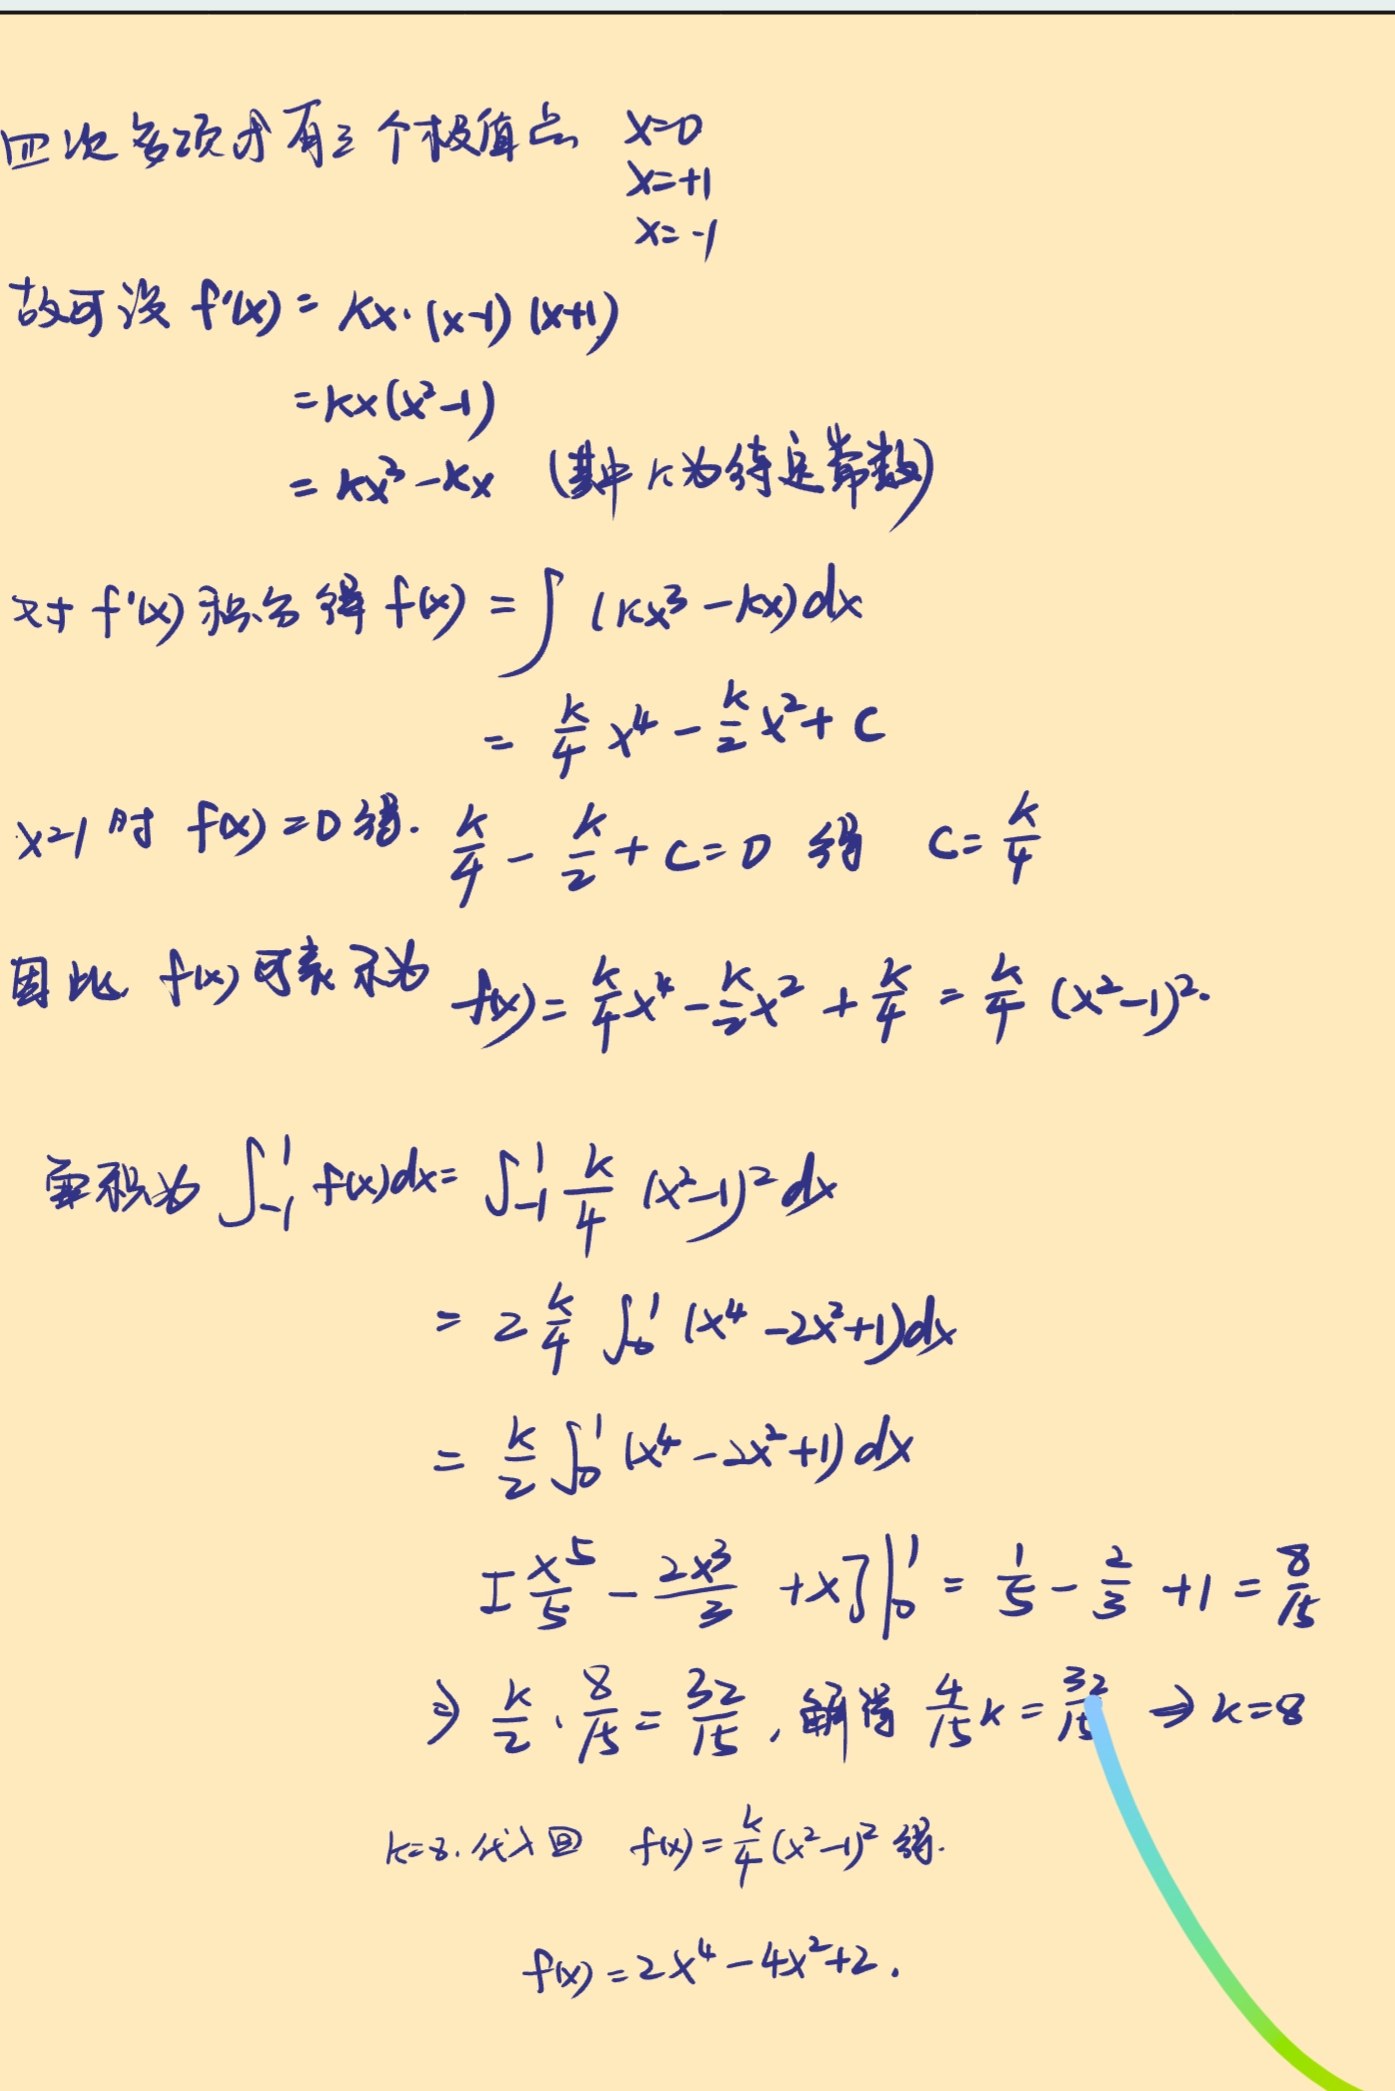 四次多项式有三个极值点 x=0
x=+1
x=-1
故可设 f'(x) = kx·(x-1)(x+1)
=kx(x²-1)
= kx³-kx (其中k为待定常数)
对f'(x)积分得 f(x) = ∫(kx³-kx)dx
= k/4 x⁴ - k/2 x² + C
x=1时 f(x)=0得. k/4 - k/2 + C=0 得 C= k/4
因此 f(x)可表示为 f(x)= k/4 x⁴ - k/2 x² + k/4 = k/4 (x²-1)².
面积为 ∫₋₁¹ f(x)dx= ∫₋₁¹ k/4 (x²-1)² dx
= 2 k/4 ∫₀¹ (x⁴-2x²+1)dx
= k/2 ∫₀¹ (x⁴-2x²+1)dx
[x⁵/5 - 2x³/3 +x]|₀¹ = 1/5 - 2/3 +1 = 8/15
⇒ k/2 · 8/15 = 32/15, 解得 4/15 k = 32/15 → k=8
k=8. 代入回 f(x) = k/4 (x²-1)² 得.
f(x) = 2x⁴-4x²+2.